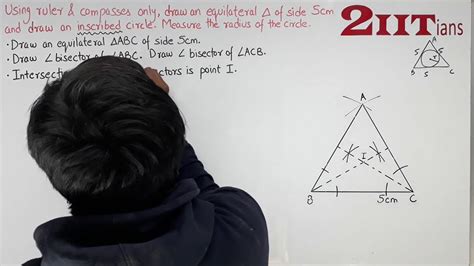 Using ruler & compasses only, draw an equilateral Δ of side 5cm
and draw an inscribed circle. Measure the radius of the circle.
• Draw an equilateral ΔABC of side 5cm.
• Draw ∠ bisector of ∠ABC. Draw ∠ bisector of ∠ACB.
• Intersec ctors is point I.
2IITians
A
5 5
I
B 5 C
A
I
B 5cm C